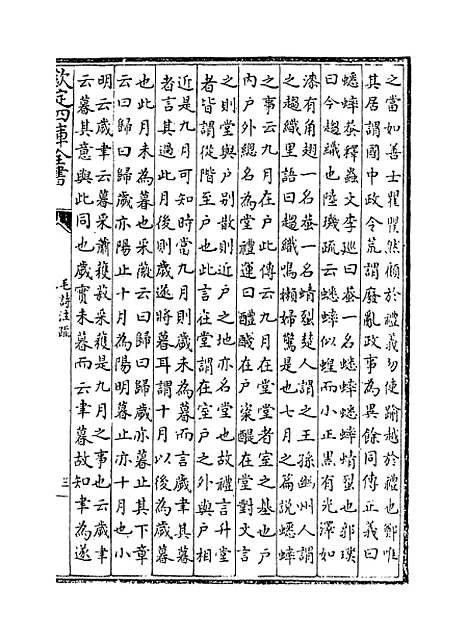 之當如善士瞿瞿然顧於禮義勿使踰越於禮也鄭唯
其居謂國中政令荒謂廢亂政事為異餘同傳正義曰
蟋蟀蛬釋蟲文李廵曰蛬一名蟋蟀蟋蟀蜻蛚也郭璞
曰今趨織也陸璣疏云蟋蟀似蝗而小正黒有光澤如
漆有角翅一名蛬一名蜻蛚楚人謂之王孫幽州人謂
之趨織里語曰趨織鳴懶婦驚是也七月之篇説蟋蟀
之事云九月在户此傳云九月在堂堂者室之基也户
内户外總名為堂禮運曰醴醆在户粢醍在堂對文言
之則堂與户别散則近户之地亦名堂也故禮言升堂
者皆謂從階至户也此言在堂謂在室户之外與户相
近是九月可知時當九月則歲未為暮而言歲聿其暮
者言其過此月後則歲遂將暮耳謂十月以後為歲暮
也此月未為暮也采薇云曰歸曰歸歲亦暮止其下章
云曰歸曰歸歲亦陽止十月為陽明暮止亦十月也小
明云歲聿云暮采蕭穫菽采穫是九月之事也云歲聿
云暮其意與此同也歲實未暮而云聿暮故知聿為遂
欽定四庫全書
毛詩注疏
三